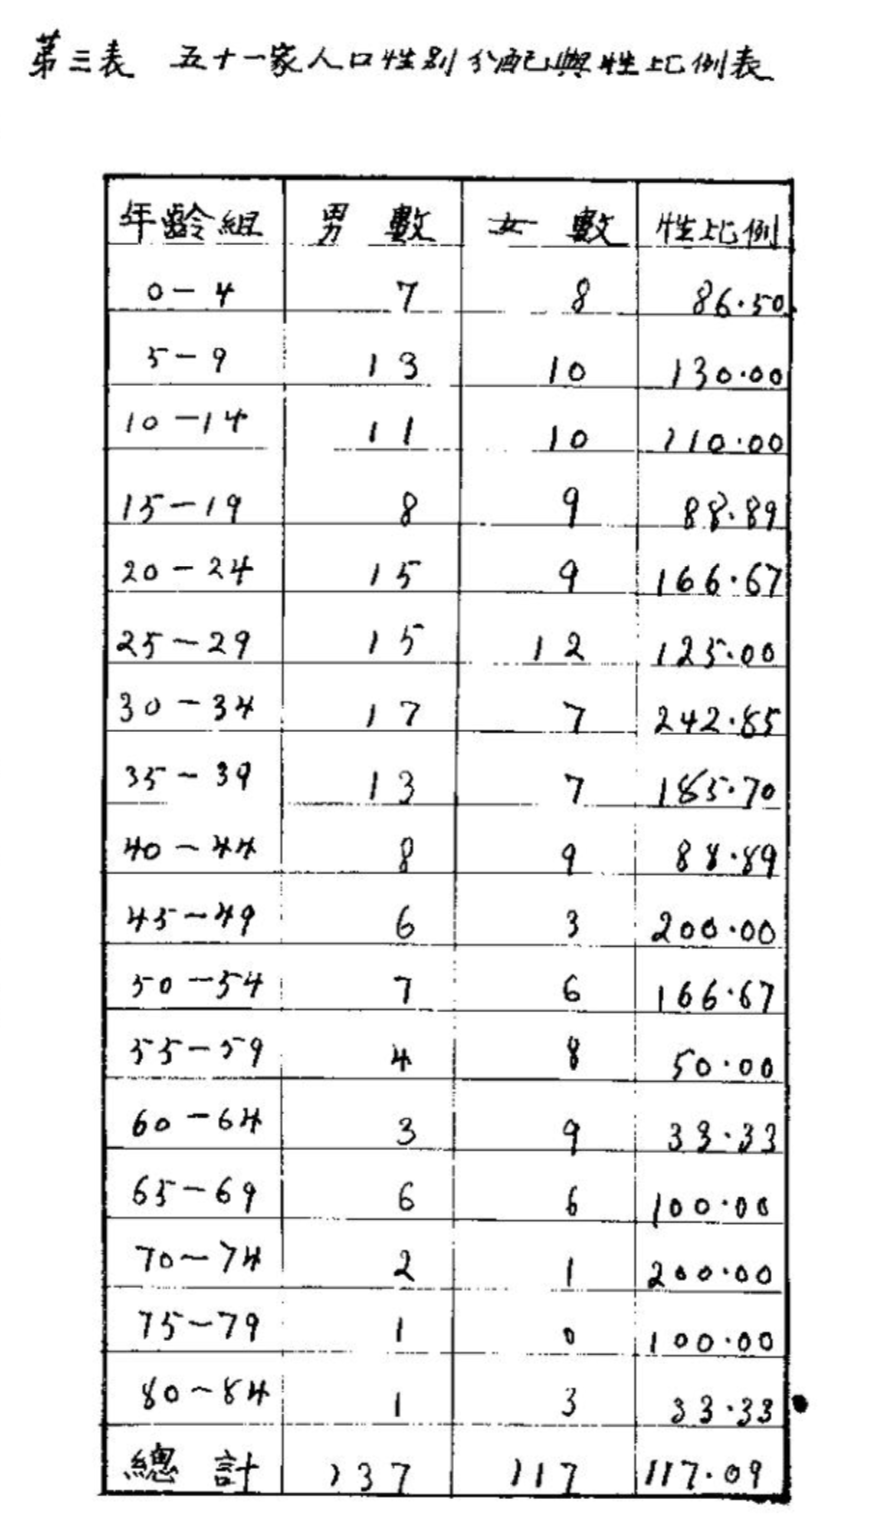 第三表 五十一家人口性别分配與性比例表
年齡組 男數 女數 性比例
0-4 7 8 86.50
5-9 13 10 130.00
10-14 11 10 110.00
15-19 8 9 88.89
20-24 15 9 166.67
25-29 15 12 125.00
30-34 17 7 242.85
35-39 13 7 185.70
40-44 8 9 88.89
45-49 6 3 200.00
50-54 7 6 166.67
55-59 4 8 50.00
60-64 3 9 33.33
65-69 6 6 100.00
70-74 2 1 200.00
75-79 1 0 100.00
80-84 1 3 33.33
總計 137 117 117.09